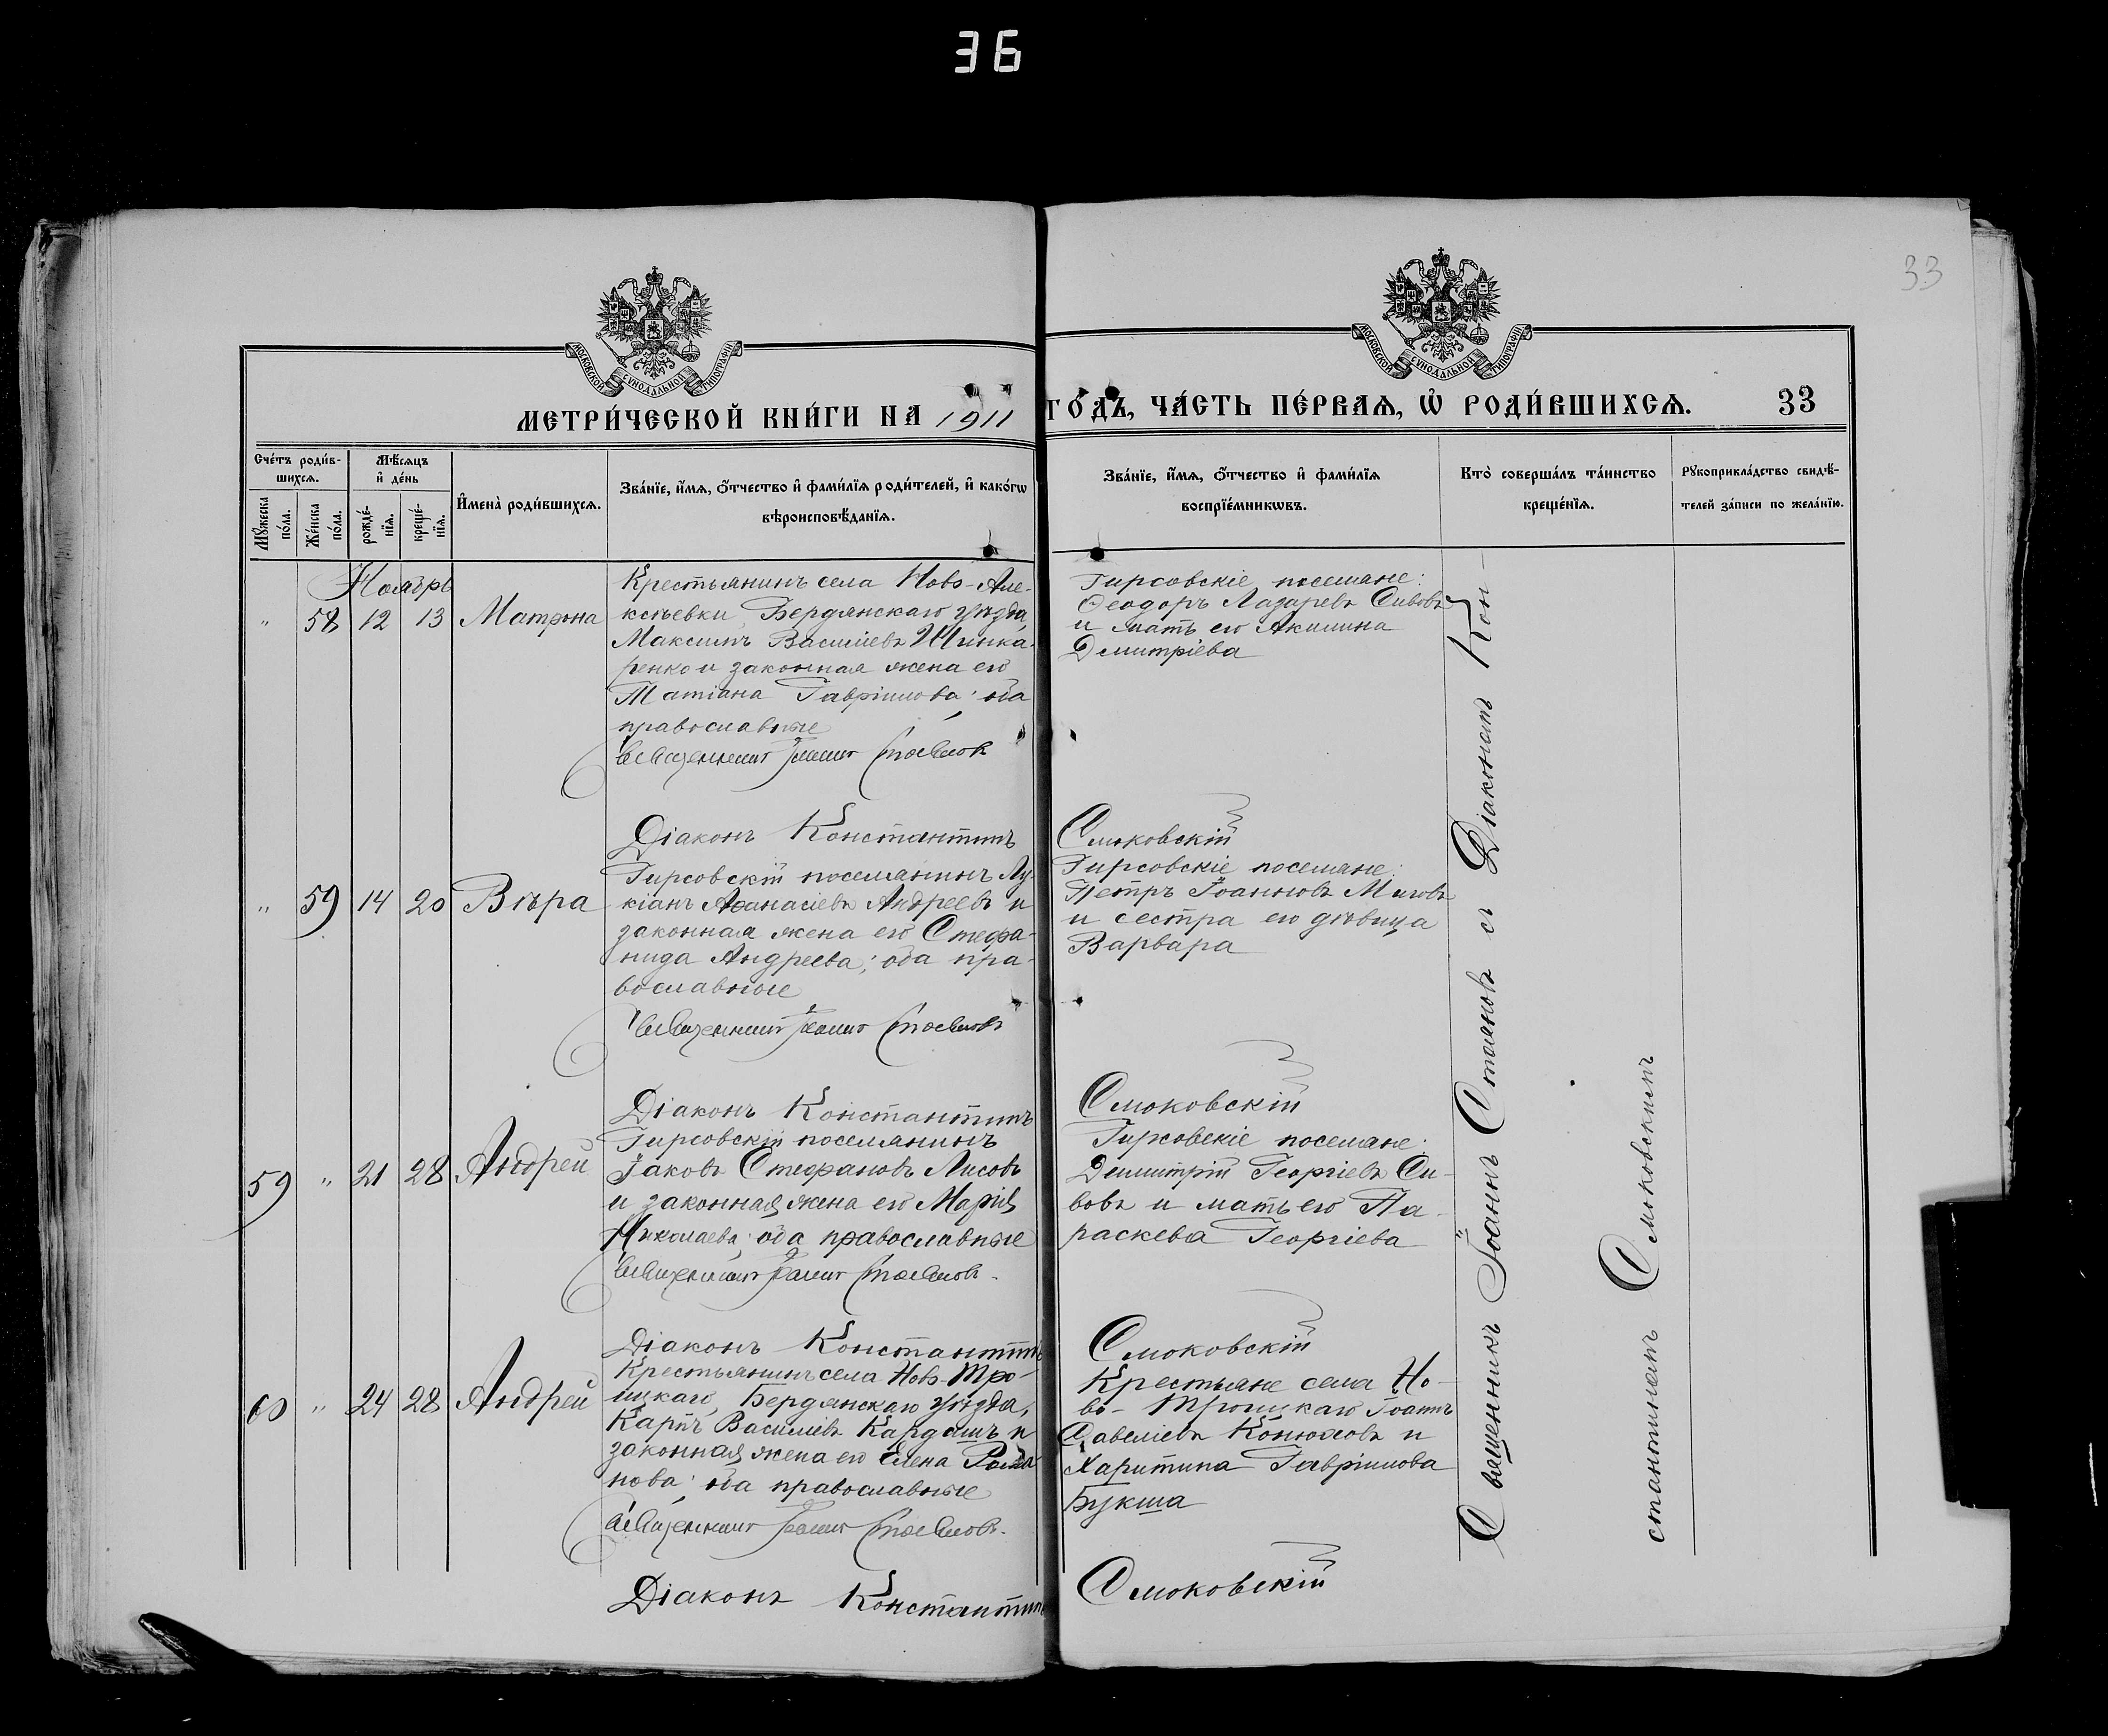 36
33
МОСКОВСКОЙ СѴНОДАЛЬНОЙ ТИПОГРАФІИ
МОСКОВСКОЙ СѴНОДАЛЬНОЙ ТИПОГРАФІИ
МЕТРИ́ЧЕСКОЙ КНИ́ГИ НА 1911 ГО́ДЪ, ЧА́СТЬ ПЕ́РВАѦ, Ѡ҆ РОДИ́ВШИХСѦ. 33
Сче́тъ роди́в-
шихсѧ.
Мꙋ́жеска по́ла.
Же́нска по́ла.
Мѣ́сѧцъ и҆ де́нь
рожде́-
нїѧ.
креще́-
нїѧ.
И҆мена̀ роди́вшихсѧ.
Зва́нїе, и҆́мѧ, ѻ҆́тчество и҆ фами́лїѧ роди́телей, и҆ како́гѡ
вѣроисповѣ́данїѧ.
Зва́нїе, и҆́мѧ, ѻ҆́тчество и҆ фами́лїѧ
воспрїе́мникѡвъ.
Кто̀ соверша́лъ та́инство
креще́нїѧ.
Рꙋкоприкла́дство свидѣ́-
телей за́писи по жела́нїю.
Ноябрь
" 58 12 13 Матрона
Крестьянинъ села Ново-Але-
ксѣевки, Бердянскаго уѣзда,
Максимъ Василіевъ Шинка-
ренко и законная жена его
Татіана Гавріилова; оба
православные
Священникъ Іоаннъ Стояновъ
Діаконъ Константинъ
Гирсовскіе поселяне:
Ѳеодоръ Лазаревъ Сивовъ
и мать его Акилина
Димитріева
Смоковскій
" 59 14 20 Вѣра
Гирсовскій поселянинъ Лу-
кіанъ Аѳанасіевъ Андреевъ и
законная жена его Стефа-
нида Андреева; оба пра-
вославные
Священникъ Іоаннъ Стояновъ
Діаконъ Константинъ
Гирсовскіе поселяне:
Петръ Іоанновъ
и сестра его дѣвица
Варвара
Смоковскій
59 " 21 28 Андрей
Гирсовскій поселянинъ
Іаковъ Стефановъ Лисовъ
и законная жена его Марія
Николаева; оба православные
Священникъ Іоаннъ Стояновъ
Діаконъ Константинъ
Гирсовскіе поселяне:
Димитрій Георгіевъ Си-
вовъ и мать его Па-
раскева Георгіева
Смоковскій
60 " 24 28 Андрей
Крестьянинъ села Ново-Тро-
ицкаго, Бердянскаго уѣзда,
Карпъ Василіевъ Кардашъ и
законная жена его Елена Рома-
нова; оба православные
Священникъ Іоаннъ Стояновъ
Діаконъ Константинъ
Крестьяне села Но-
во-Троицкаго Іоаннъ
Савеліевъ Конюховъ и
Харитина Гавріилова
Букша
Смоковскій
Священникъ Іоаннъ Стояновъ съ Діакономъ Кон-
стантиномъ Смоковскимъ